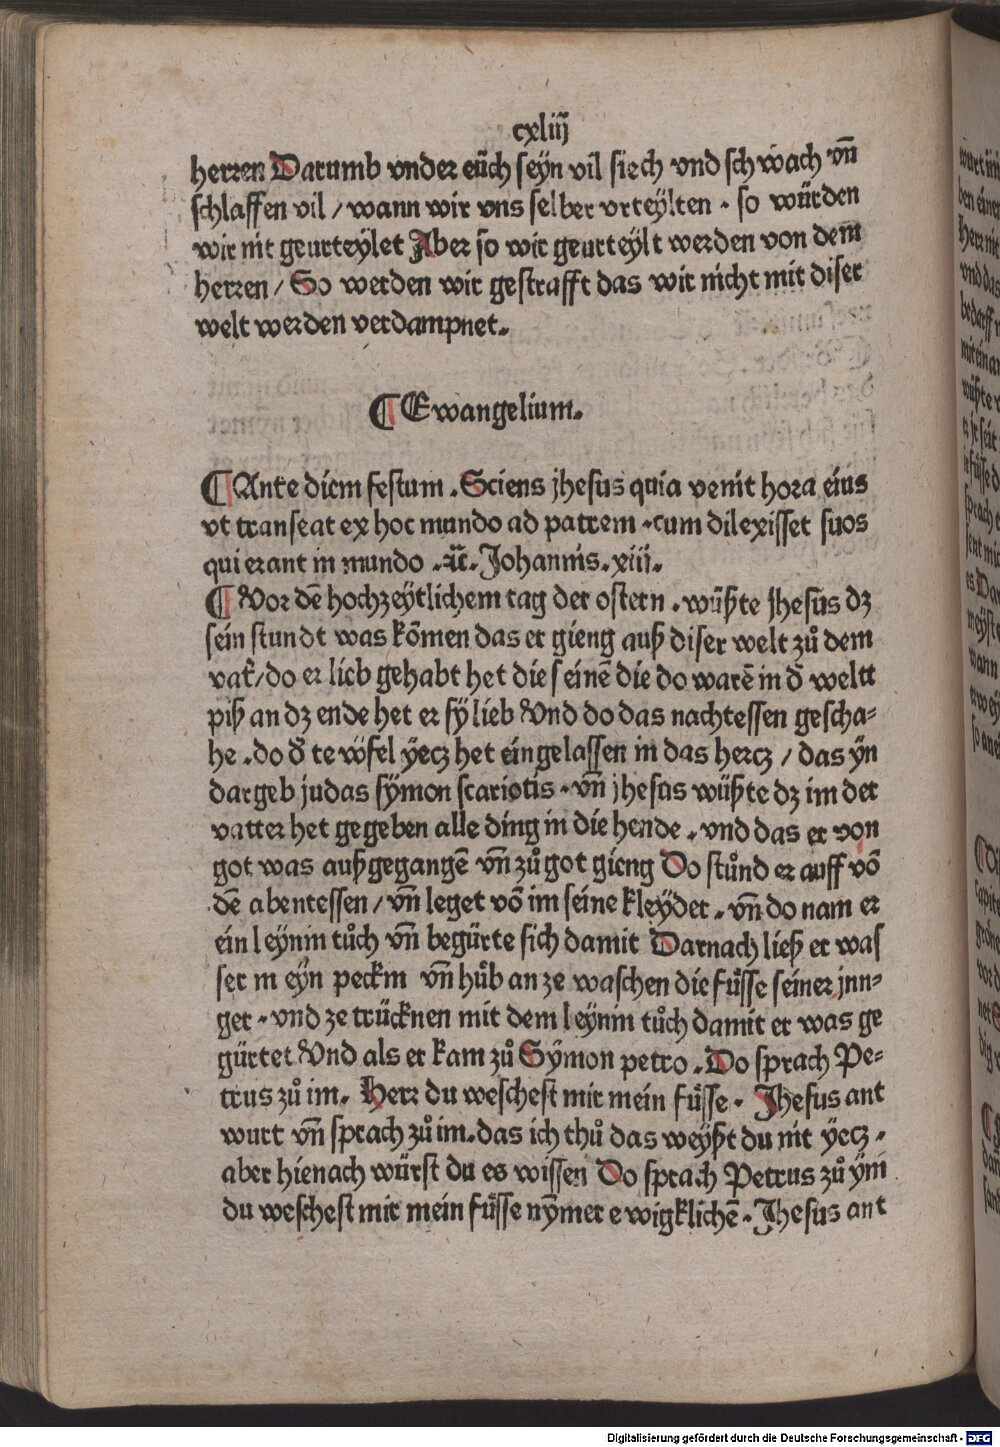 cxliij
herren Darumb vnder eüch seyn vil siech vnd schwach vn̄
schlaffen vil / wann wir vns selber vrteylten . so würden
wir nit geurteylet Aber so wir geurteylt werden von dem
herren / So werden wir gestrafft das wir nicht mit diser
welt werden verdampnet.
¶ Ewangelium.
¶ Ante diem festum . Sciens jhesus quia venit hora eius
vt transeat ex hoc mundo ad patrem . cum dilexisset suos
qui erant in mundo .zc̄. Johannis. xiij.
¶ Vor dē hochzeytlichem tag der ostern . wüßte Jhesus dz
sein stundt was kōmen das er gieng auß diser welt zů dem
vať / do er lieb gehabt het die seinē die do warē in d̄ weltt
piß an dz ende het er sy lieb Vnd do das nachtessen gescha⸗
he . do d̄ tewfel yecz het eingelassen in das hercz / das yn
dargeb judas symon scariotis . vn̄ jhesus wüßte dz im der
vatter het gegeben alle ding in die hende . vnd das er von
got was außgegangē vn̄ zů got gieng Do stůnd er auff vō
dē abentessen / vn̄ leget vō im seine kleyder . vn̄ do nam er
ein leynin tůch vn̄ begürte sich damit Darnach ließ er was
ser in eyn peckin vn̄ hůb an ze waschen die fůsse seiner jun⸗
ger . vnd ze trücknen mit dem leynin tůch damit er was ge
gürtet Vnd als er kam zů Symon petro . Do sprach Pe⸗
trus zů im. Herr du weschest mir mein fůsse . Jhesus ant
wurt vn̄ sprach zů im . das ich thů das weyßt du nit yecz .
aber hienach würst du es wissen Do sprach Petrus zů ym
du weschest mir mein fůsse nȳmer ewigklichē . Jhesus ant
Digitalisierung gefördert durch die Deutsche Forschungsgemeinschaft - DFG